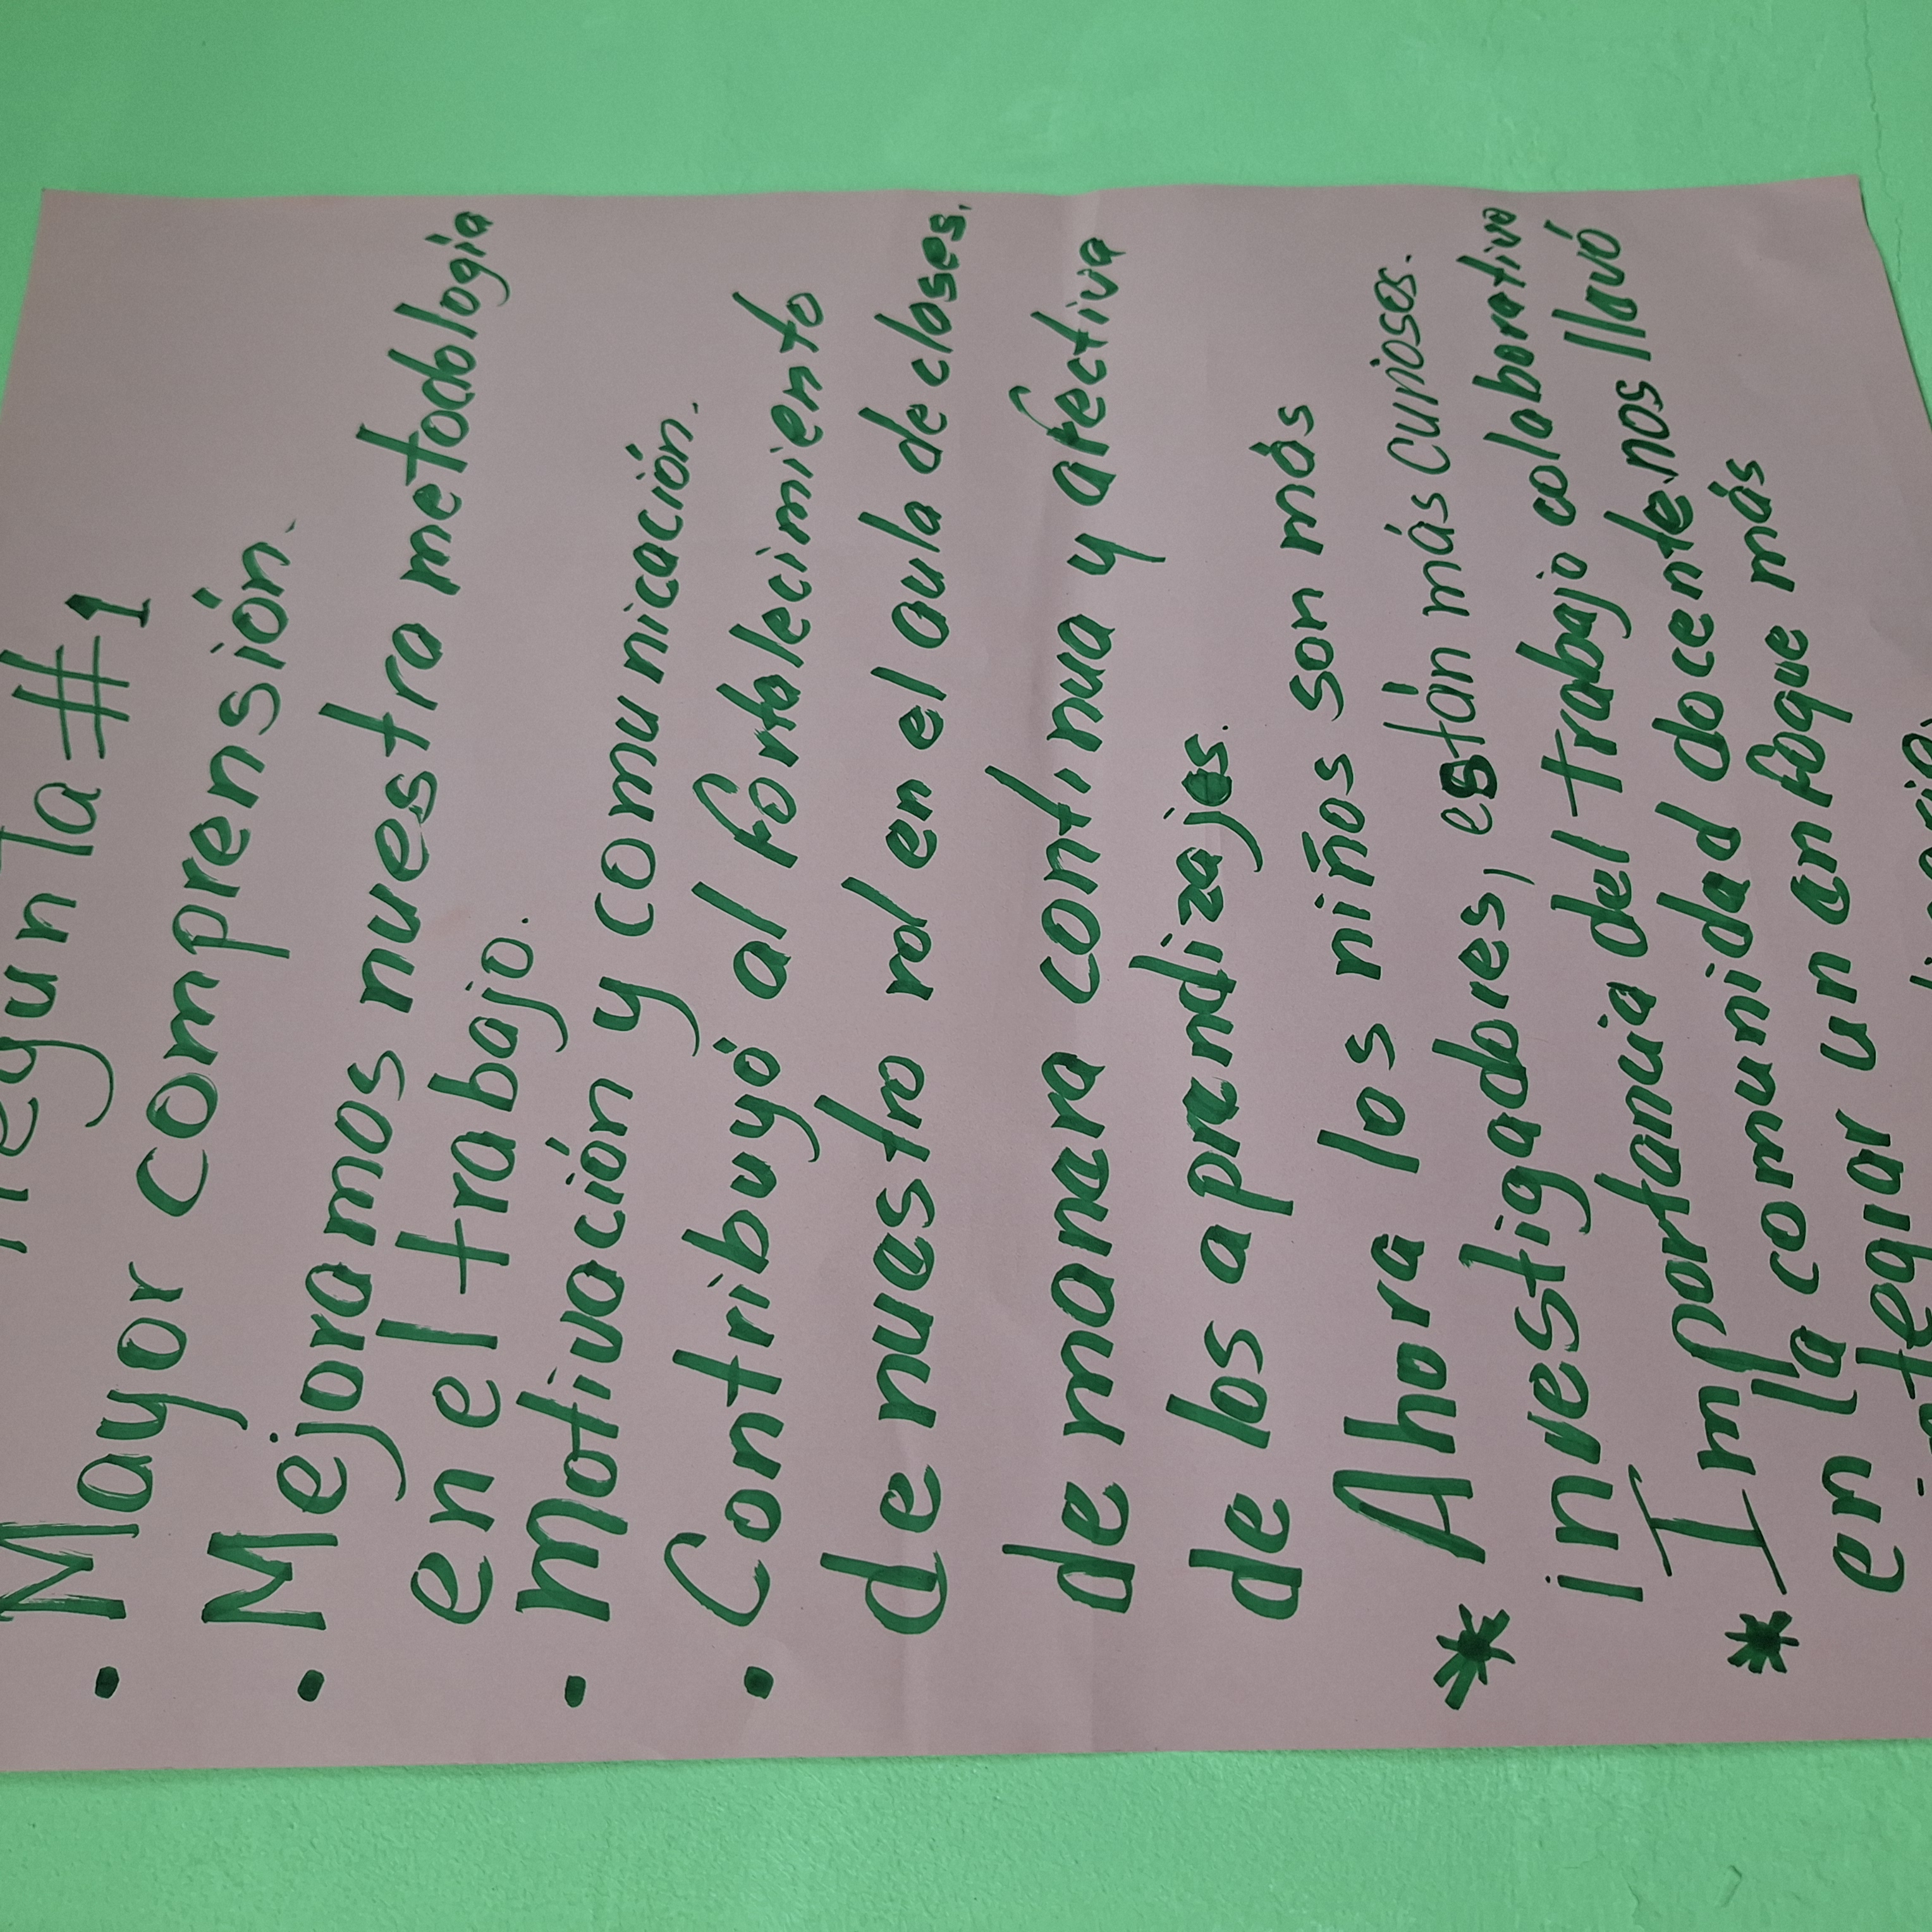 Pregunta #1
• Mayor comprensión.
• Mejoramos nuestra metodología
en el trabajo.
• Motivación y comunicación.
• Contribuyó al fortalecimiento
de nuestro rol en el aula de clases.
de manera continua y efectiva
de los aprendizajes.
* Ahora los niños son más
investigadores, están más curiosos.
* Importancia del trabajo colaborativo
en la comunidad docente nos llevó
en un enfoque más